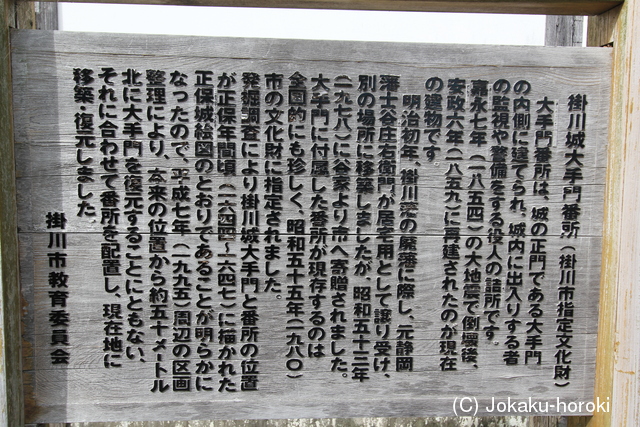 掛川城大手門番所（掛川市指定文化財）
大手門番所は、城の正門である大手門
の内側に建てられ、城内に出入りする者
の監視や警備をする役人の詰所です。
嘉永七年（一八五四）の大地震で倒壊後、
安政六年（一八五九）に再建されたのが現在
の建物です。
明治初年、掛川藩の廃藩に際し、元静岡
藩士谷庄右衛門が居宅用として譲り受け、
別の場所に移築しましたが、昭和五十三年
（一九七八）に谷家より市へ寄贈されました。
大手門に付属した番所が現存するのは
全国的にも珍しく、昭和五十五年（一九八〇）
市の文化財に指定されました。
発掘調査により掛川城大手門と番所の位置
が正保年間頃（一六四四〜一六四七）に描かれた
正保城絵図のとおりであることが明らかに
なったので、平成七年（一九九五）周辺の区画
整理により、本来の位置から約五十メートル
北に大手門を復元することにともない、
それに合わせて番所を配置し、現在地に
移築・復元しました。
掛川市教育委員会
(C) Jokaku-horoki